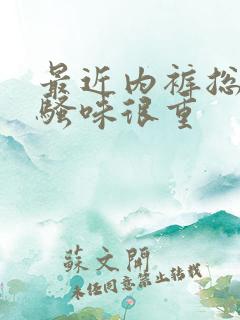 最近内裤总
骚味很重
蘇文開
未经同意禁止转载